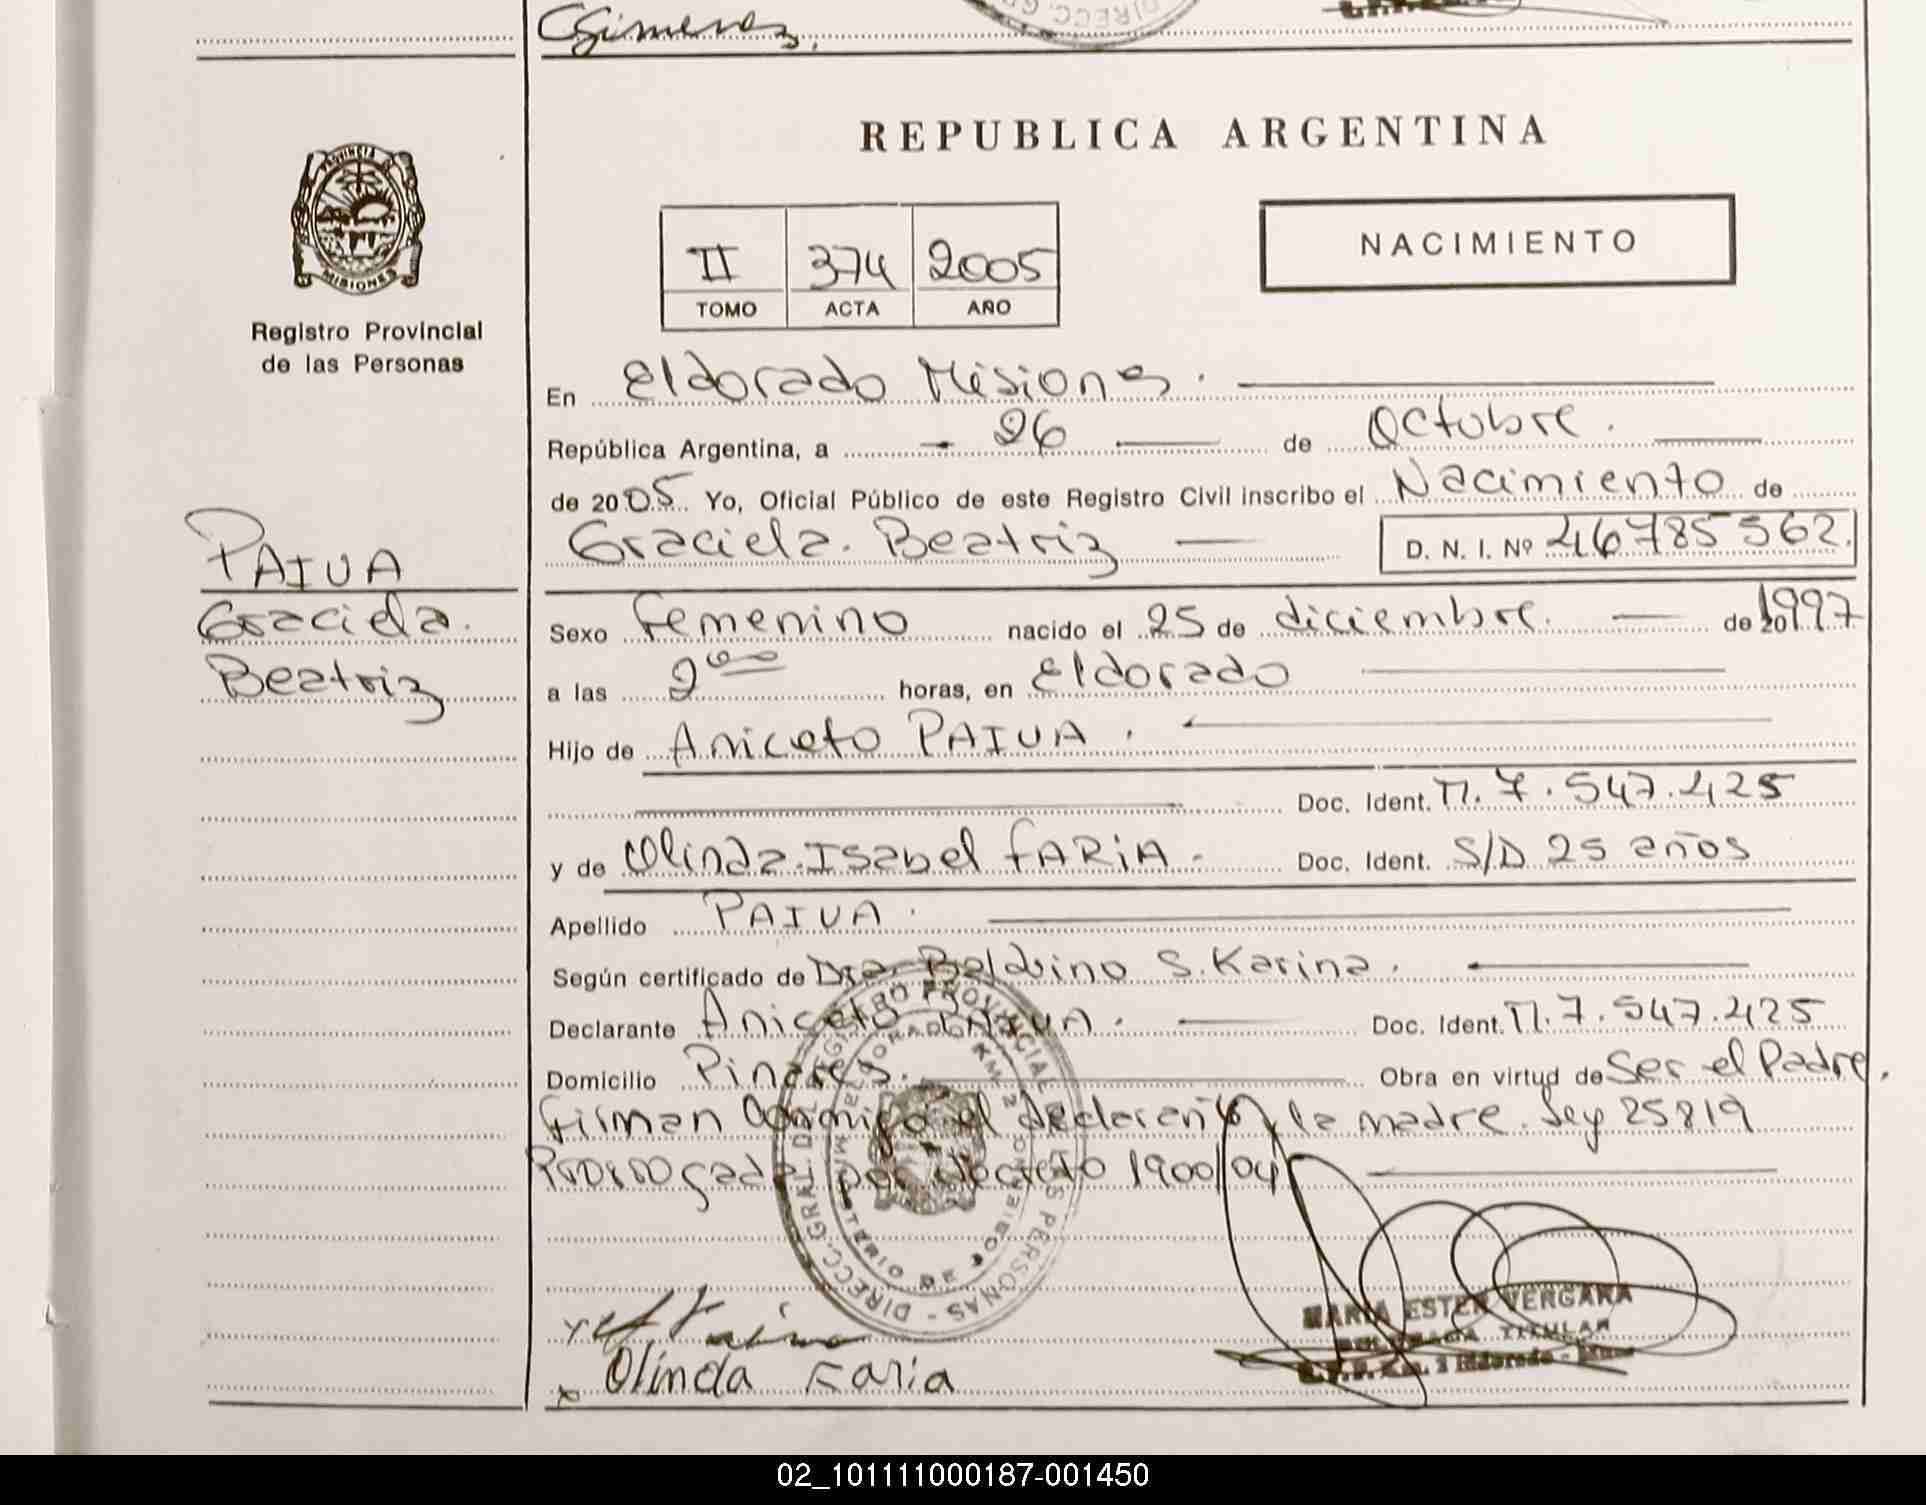 CGimenez.
REPUBLICA ARGENTINA
PROVINCIA DE
MISIONES
Registro Provincial
de las Personas
NACIMIENTO
II 374 2005
TOMO ACTA AÑO
En Eldorado Misiones.
República Argentina, a 26 de Octubre.
de 2005 Yo, Oficial Público de este Registro Civil inscribo el Nacimiento de
Graciela. Beatriz D. N. I. Nº 46785562.
PAIVA
Graciela.
Beatriz
Sexo femenino nacido el 25 de diciembre. de 20 1997
a las 2 00 horas, en Eldorado
Hijo de Aniceto PAIVA.
Doc. Ident. M. 7.547.425
y de Olinda. Isabel FARiA. Doc. Ident. S/D 25 años
Apellido PAIVA.
Según certificado de Dra. Baldvino S. Karina.
Declarante Aniceto PAIVA. Doc. Ident. M. 7.547.425
Domicilio Pinares. Obra en virtud de Ser el Padre.
firman conmigo el declarante y la madre. Ley 25819
Prorrogada por decreto 1900/04
DIRECC. GRAL. DEL REGISTRO PROVINCIAL DE LAS PERSONAS
MINISTERIO DE GOBIERNO
ELDORADO KM 2
MARIA ESTER VERGARA
DELEGADA TITULAR
R.P.P. Km. 2 Eldorado - Mnes
x Olinda Faria
02_101111000187-001450